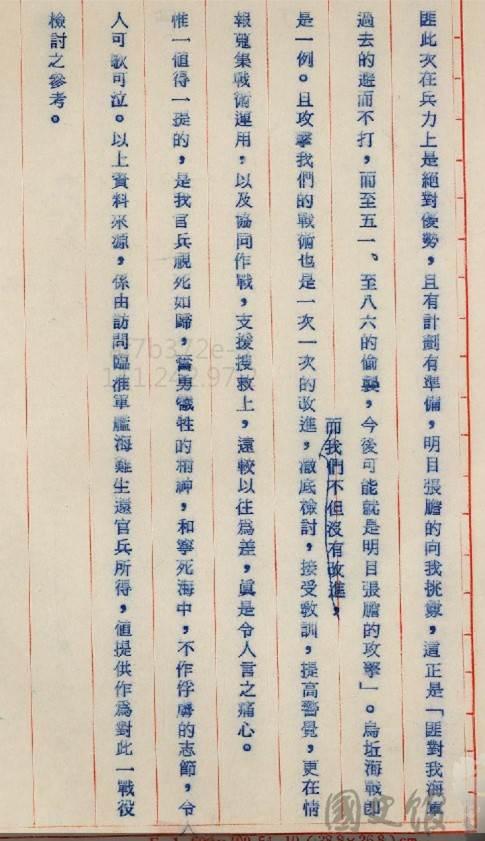 匪此次在兵力上是絕對優勢，且有計劃有準備，明目張膽的向我挑釁，這正是「匪對我海軍
過去的避而不打，而至五一、至八六的偷襲，今後可能就是明目張膽的攻擊」。烏坵海戰即
是一例。且攻擊我們的戰術也是一次一次的改進，
而我們不但沒有改進，
澈底檢討，接受教訓，提高警覺，更在情
報蒐集戰術運用，以及協同作戰，支援搜救上，遠較以往爲差，眞是令人言之痛心。
惟一值得一提的，是我官兵視死如歸，奮勇犧牲的精神，和寧死海中，不作俘虜的志節，令
人可歌可泣。以上資料來源，係由訪問臨淮軍艦海難生還官兵所得，值提供作爲對此一戰役
檢討之參考。
國史館